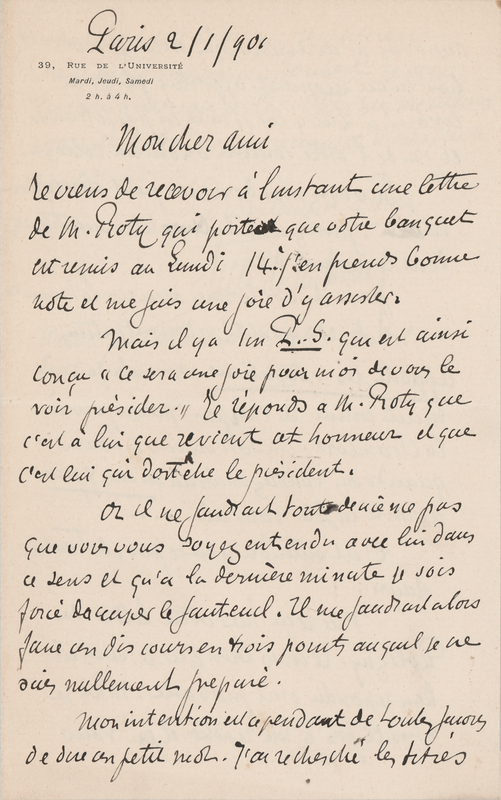 Paris 2/1/901
39, RUE DE L'UNIVERSITÉ
Mardi, Jeudi, Samedi
2 h. à 4 h.
Mon cher ami
Je viens de recevoir à l'instant une lettre
de M. Roty qui porte que votre banquet
est remis au Lundi 14. J'en prends bonne
note et me fais une joie d'y assister.
Mais il y a un P.-S. qui est ainsi
conçu " ce sera une joie pour moi de vous le
voir présider." Je réponds a M. Roty que
c'est à lui que revient cet honneur et que
c'est lui qui doit être le président.
Or il ne faudrait tout de même pas
que vous vous soyez entendu avec lui dans
ce sens et qu'a la dernière minute je sois
forcé d'occuper le fauteuil. Il me faudrait alors
faire un discours en trois points auquel je ne
suis nullement préparé.
Mon intention est cependant de toutes façons
de dire un petit mot. J'ai recherché les titres